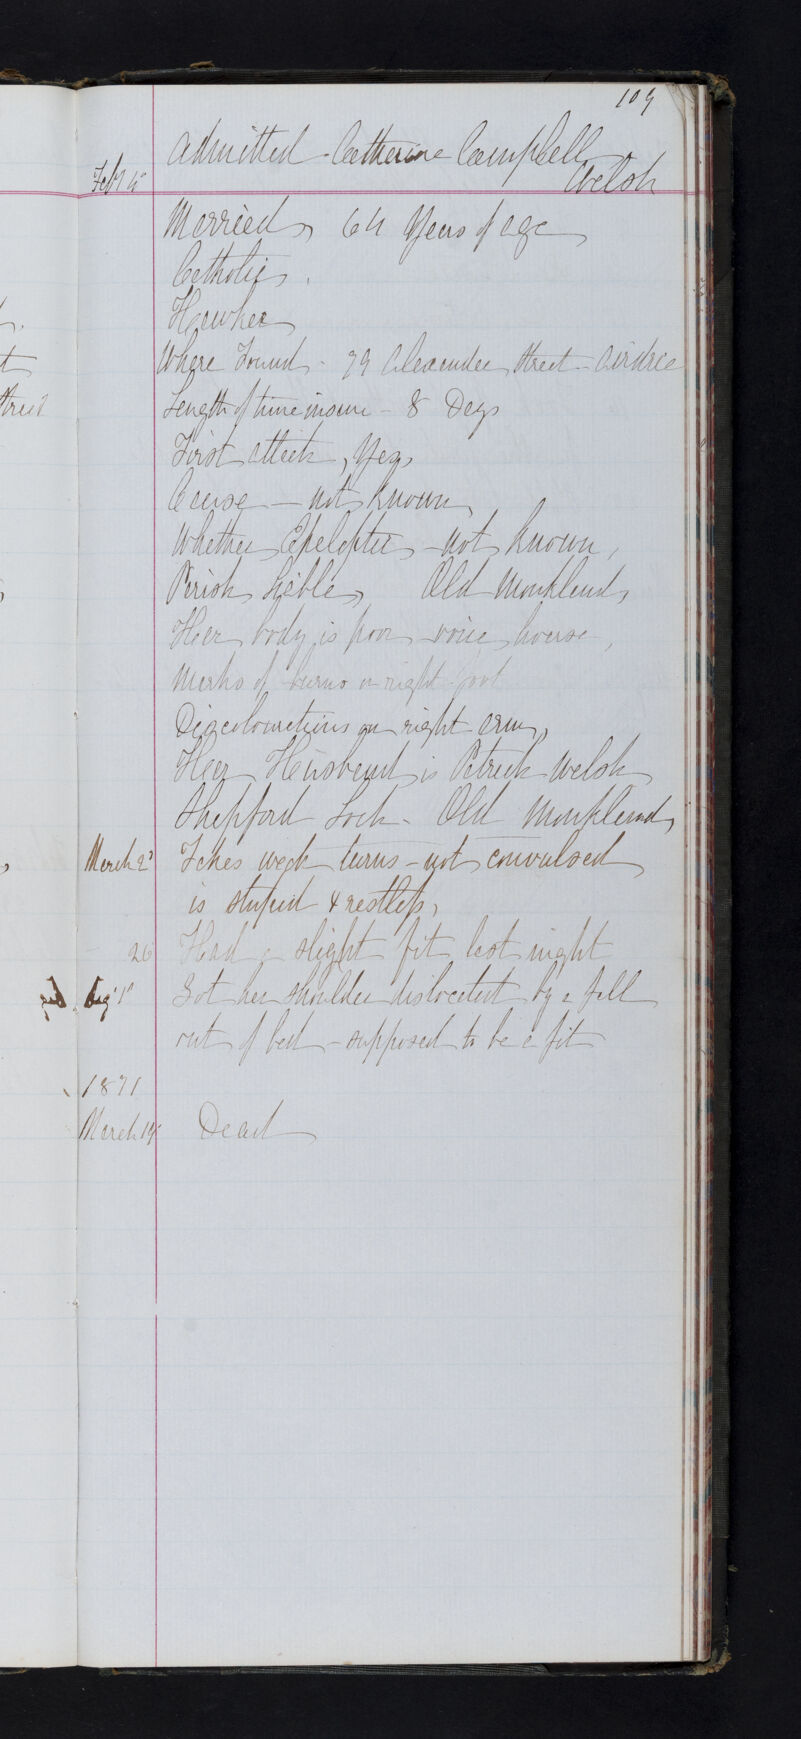 109
Feby 15 Admitted Catherine Campbell
Welsh
Married 64 Years of age
Catholic.
Hawker
Where Found - 79 Alexander Street - Airdrie
Length of time insane - 8 Days
First attack, Yes
Cause - not known
Whether Epileptic - not known,
Parish Liable, Old Monkland,
Her body is poor voice hoarse,
Marks of burns on right foot
Discolourations on right arm,
Her Husband is Patrick Welsh
Shepford Lock - Old Monkland,
March 2d Takes weak turns - not convulsed
is stupid & restless,
26 Had a slight fit last night
Augt 1st Got her shoulder dislocated by a fall
out of bed - supposed to be a fit
1871
March 14 Dead